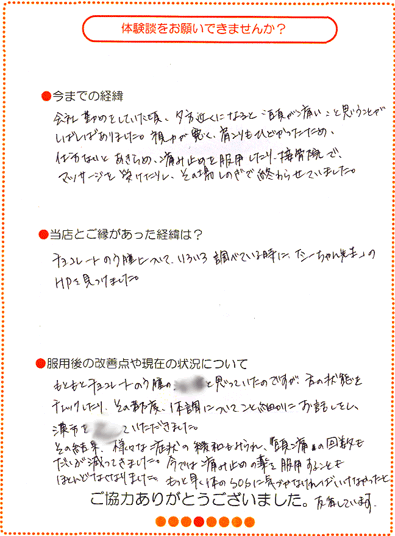 体験談をお願いできませんか？
●今までの経緯
会社勤めをしていた頃、夕方近くになると「頭が痛い」と思うことが
しばしばありました。視力が悪く、肩こりもひどかったため、
仕方ないとあきらめ、痛み止めを服用したり、接骨院で、
マッサージを受けたりし、その場しのぎで終わらせていました。
●当店とご縁があった経緯は？
チョコレートのう腫について、いろいろ調べている時に、「たーちゃん先生」の
HPを見つけました。
●服用後の改善点や現在の状況について
もともとチョコレートのう腫の と思っていたのですが、舌の状態を
チェックしたり、その都度、体調についてこと細かにお話をし、
漢方を していただきました。
その結果、様々な症状の緩和もみられ、「頭痛」の回数も
だいぶ減ってきました。今では痛み止めの薬を服用することも
ほとんどなくなりました。もっと早く体のSOSに気づかなければいけなかったと、
ご協力ありがとうございました。反省しています。